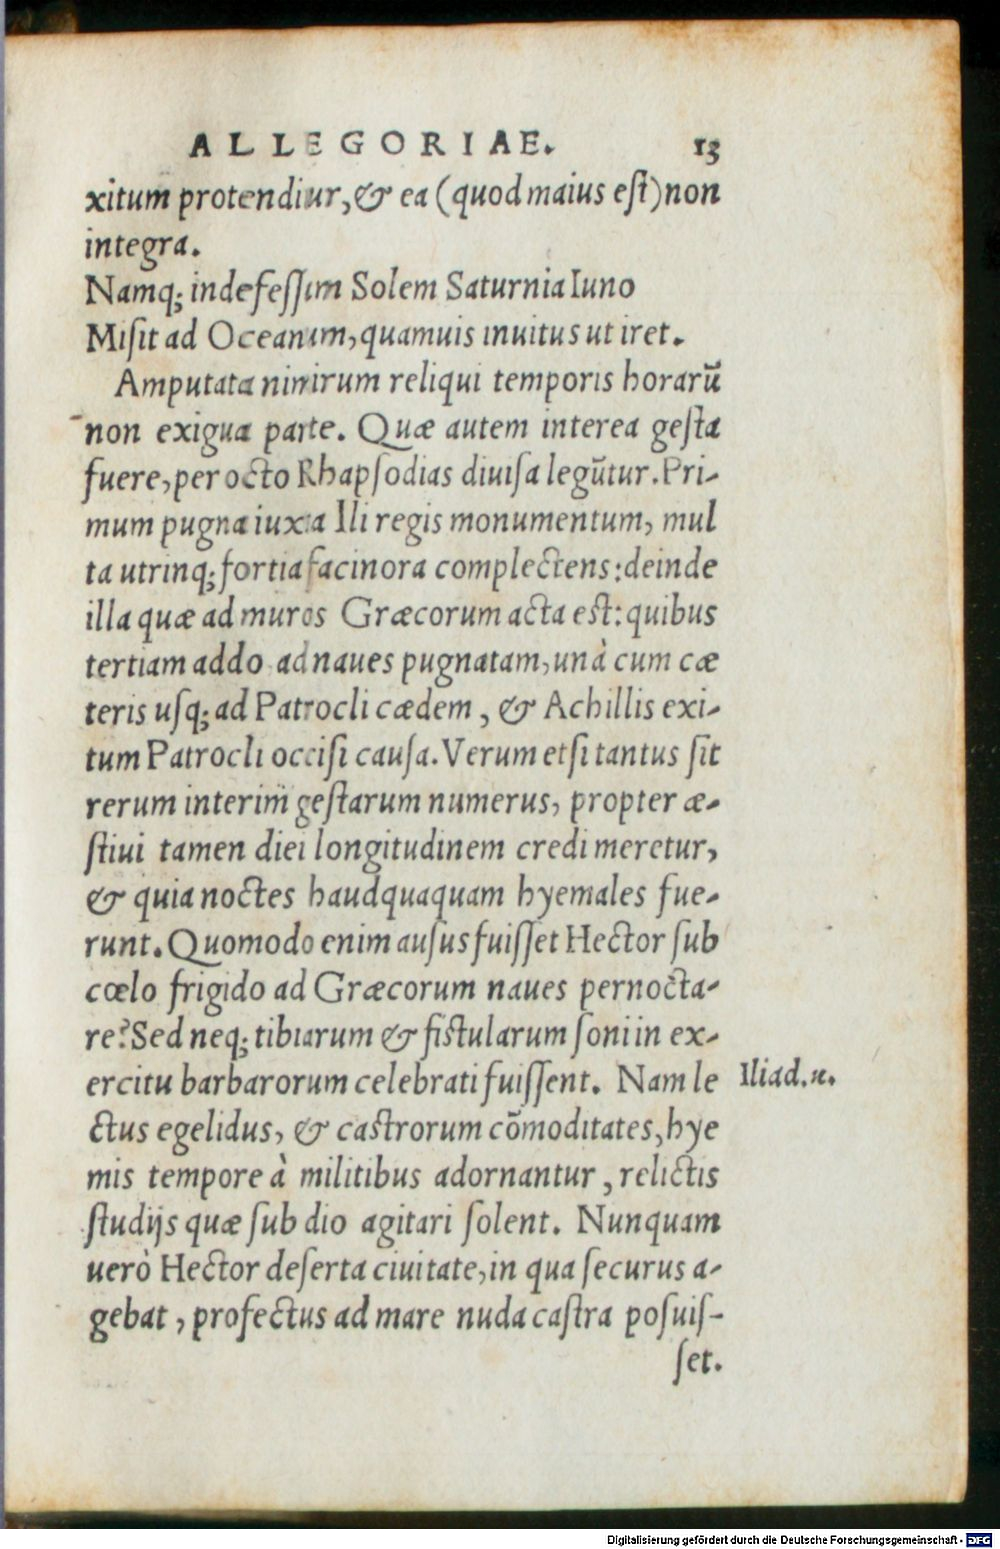 ALLEGORIAE. 13
xitum protendiur, & ea (quod maius eſt) non
integra.
Namq; indefeſſum Solem Saturnia Iuno
Miſit ad Oceanum, quamuis inuitus ut iret.
Amputata nimirum reliqui temporis horarū
non exigua parte. Quæ autem interea geſta
fuere, per octo Rhapſodias diuiſa legūtur. Pri-
mum pugna iuxta Ili regis monumentum, mul
ta utrinq; fortia facinora complectens: deinde
illa quæ ad muros Græcorum acta eſt: quibus
tertiam addo ad naues pugnatam, unà cum cæ
teris uſq; ad Patrocli cædem, & Achillis exi-
tum Patrocli occiſi cauſa. Verum etſi tantus ſit
rerum interim geſtarum numerus, propter æ-
ſtiui tamen diei longitudinem credi meretur,
& quia noctes haudquaquam hyemales fue-
runt. Quomodo enim auſus fuiſſet Hector ſub
cœlo frigido ad Græcorum naues pernocta-
re? Sed neq; tibiarum & fiſtularum ſoni in ex-
ercitu barbarorum celebrati fuiſſent. Nam le
Iliad. κ.
ctus egelidus, & caſtrorum cōmoditates, hye
mis tempore à militibus adornantur, relictis
ſtudijs quæ ſub dio agitari ſolent. Nunquam
uerò Hector deſerta ciuitate, in qua ſecurus a-
gebat, profectus ad mare nuda caſtra poſuiſ-
ſet.
Digitalisierung gefördert durch die Deutsche Forschungsgemeinschaft - DFG